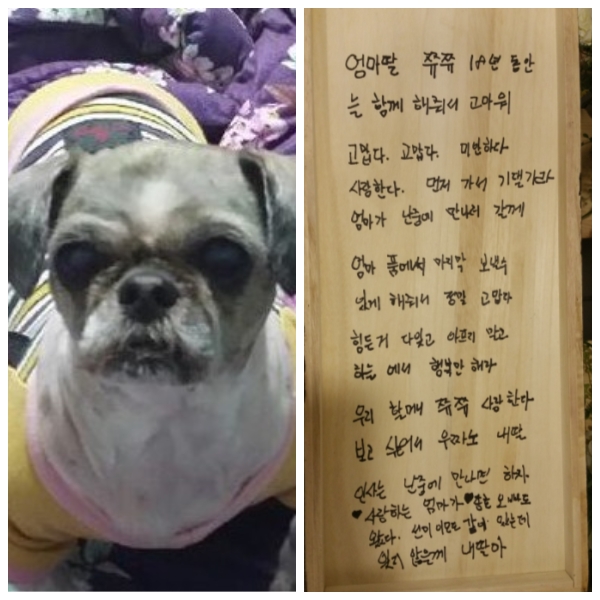 엄마딸 쮸쮸 18년 동안
늘 함께 해줘서 고마워
고맙다. 고맙다. 미안하다
사랑한다. 먼저 가서 기댈가라
엄마가 난중에 만나서 갈께
엄마 품에서 마지막 보낼수
있게 해줘서 정말 고맙다
힘든거 다잊고 아프지 말고
하늘에서 행복만 해라
우리 할매 쮸쮸 사랑한다
보고 싶어서 우짜노 내딸
인사는 난중에 만나면 하자
♥사랑하는 엄마가♥ 오빠도
왔다. 선이 이모도 같이 있는데
잊지 않을께 내딸아